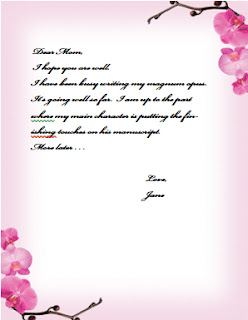 Dear Mom,
I hope you are well.
I have been busy writing my magnum opus.
It's going well so far.  I am up to the part
where my main character is putting the fin-
ishing touches on his manuscript.
More later . . .
Love,
Jane